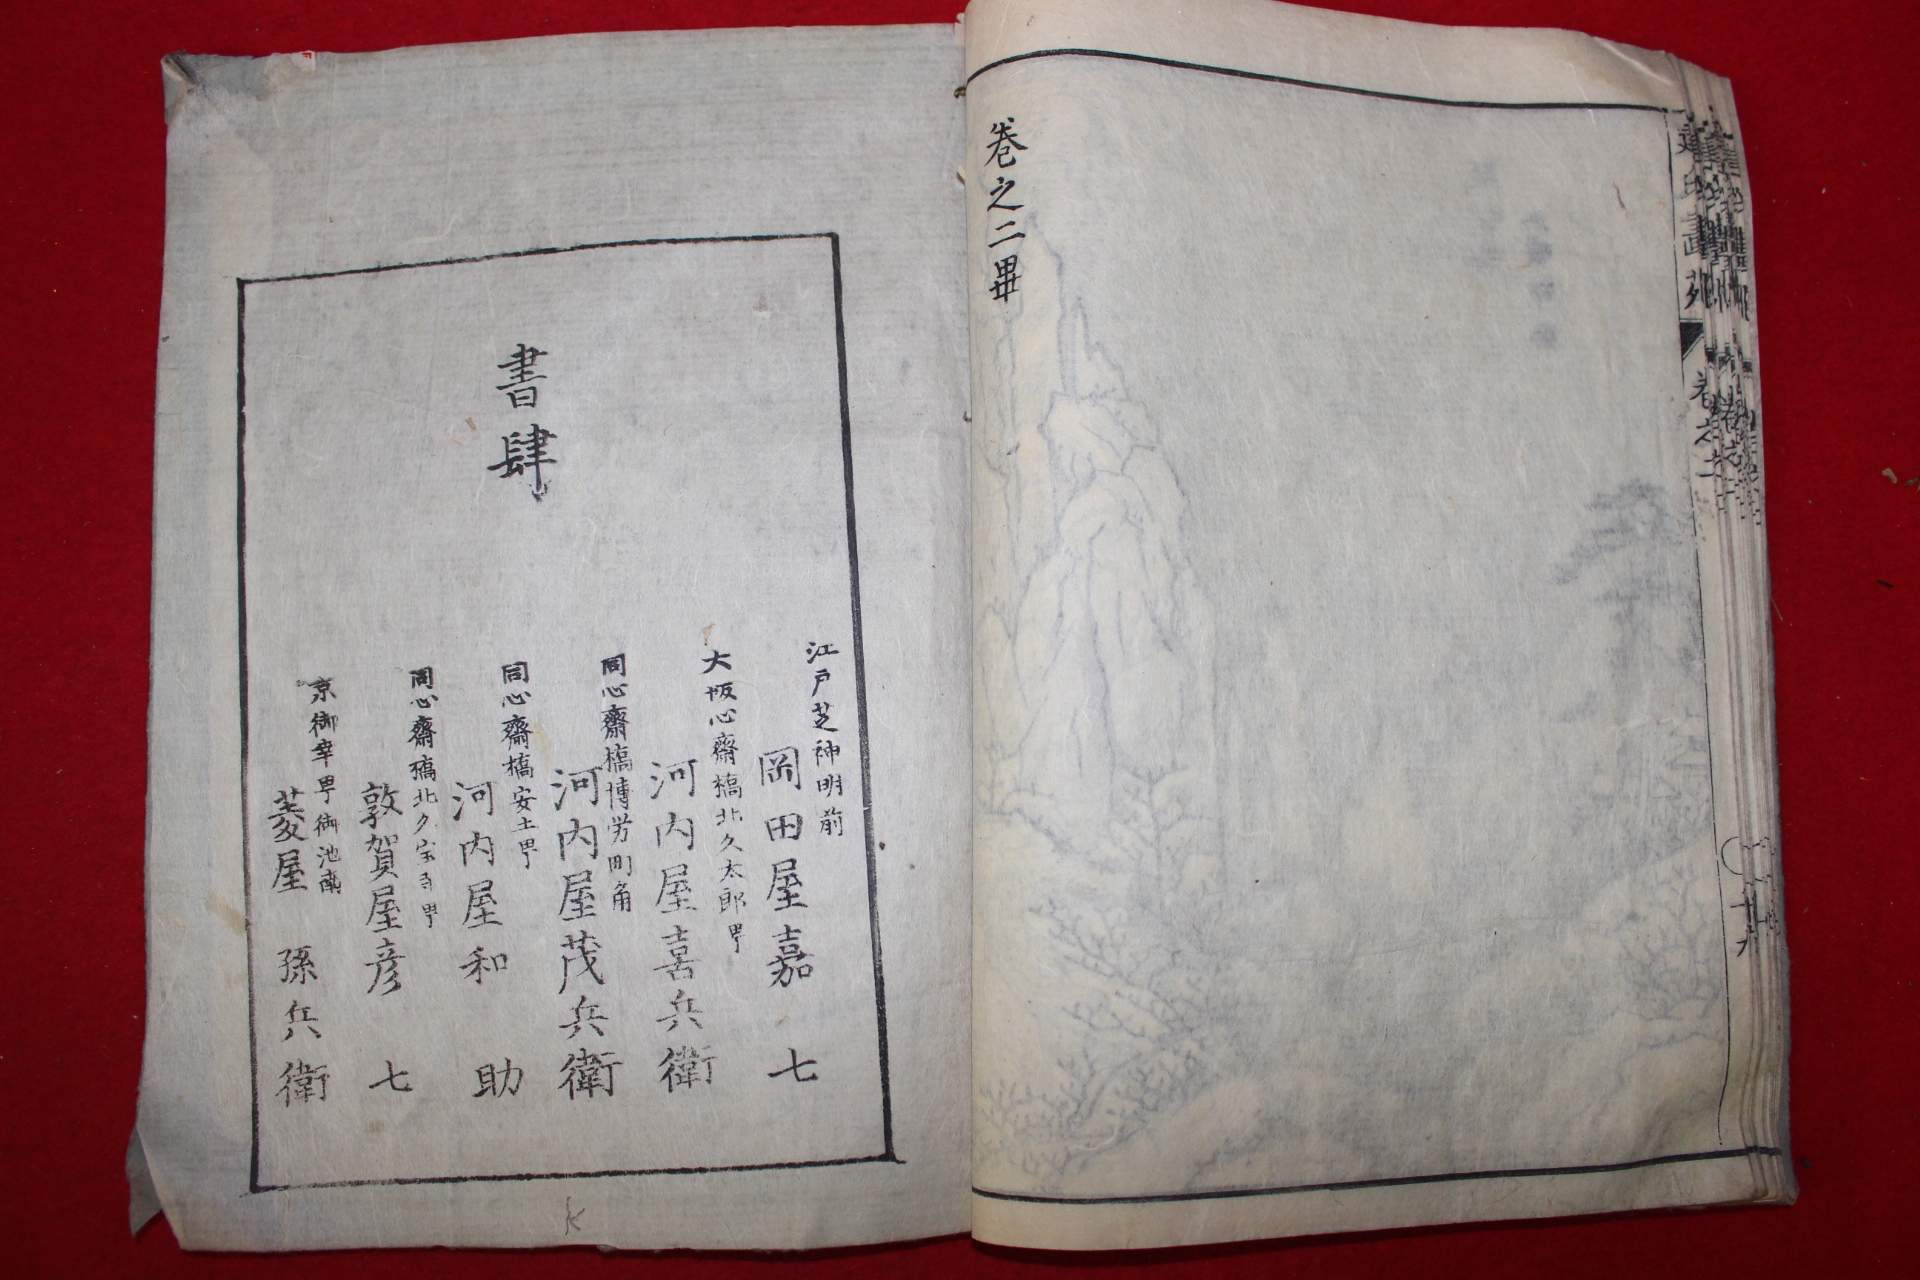 卷之二畢
建氏畫苑
卷之二
十九
書肆
江戸芝神明前
岡田屋嘉七
大坂心齋橋北久太郎町
河内屋喜兵衛
同心齋橋博労町角
河内屋茂兵衛
同心齋橋安土町
河内屋和助
同心齋橋北久宝寺町
敦賀屋彦七
京御幸町御池南
菱屋孫兵衛